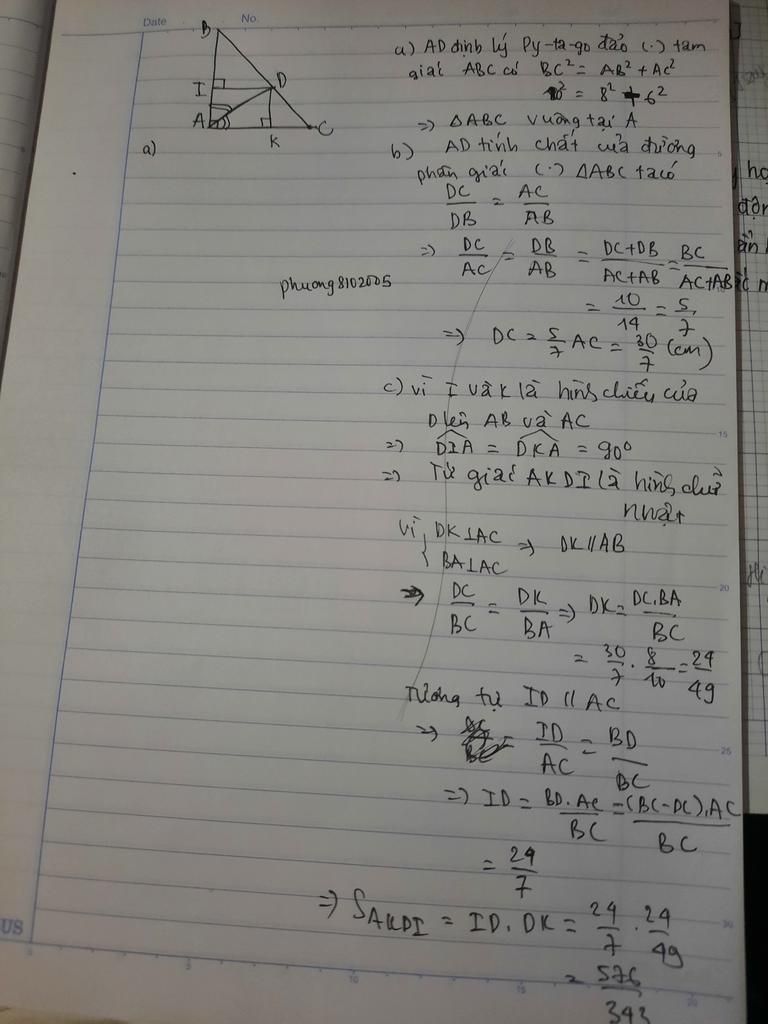 Date No.
B
I D
A K C
a)
a) AD định lý Py-ta-go đảo (.) tam
giác ABC có BC² = AB² + AC²
10² = 8² + 6²
=> △ABC vuông tại A
b) AD tính chất của đường
phân giác (.) △ABC ta có
DC/DB = AC/AB
=> DC/AC = DB/AB = DC+DB/AC+AB = BC/AC+AB
= 10/14 = 5/7
=> DC = 5/7 AC = 30/7 (cm)
phuong8102005
c) vì I và K là hình chiếu của
D lên AB và AC
=> DIA = DKA = 90°
=> Tứ giác AKDI là hình chữ
nhật
vì { DK⊥AC
BA⊥AC => DK // AB
=> DC/BC = DK/BA => DK = DC.BA/BC
= 30/7 . 8/10 = 24/49
Tương tự ID // AC
=> = ID/AC = BD/BC
=> ID = BD.AC/BC = (BC-DC).AC/BC
= 24/7
=> S AKDI = ID.DK = 24/7 . 24/49
= 576/343
US
0 5 10 15 20
15
20
25
30